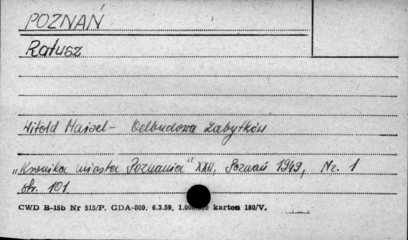 POZNAŃ
Ratusz
Witold Maisel - Odbudowa Zabytków
„Kronika miasta Poznania" XXII, Poznań 1949, Nr. 1
str. 101
CWD B-15b Nr 515/P. GDA-809. 6.3.59, 1.000.000 karton 180/V.